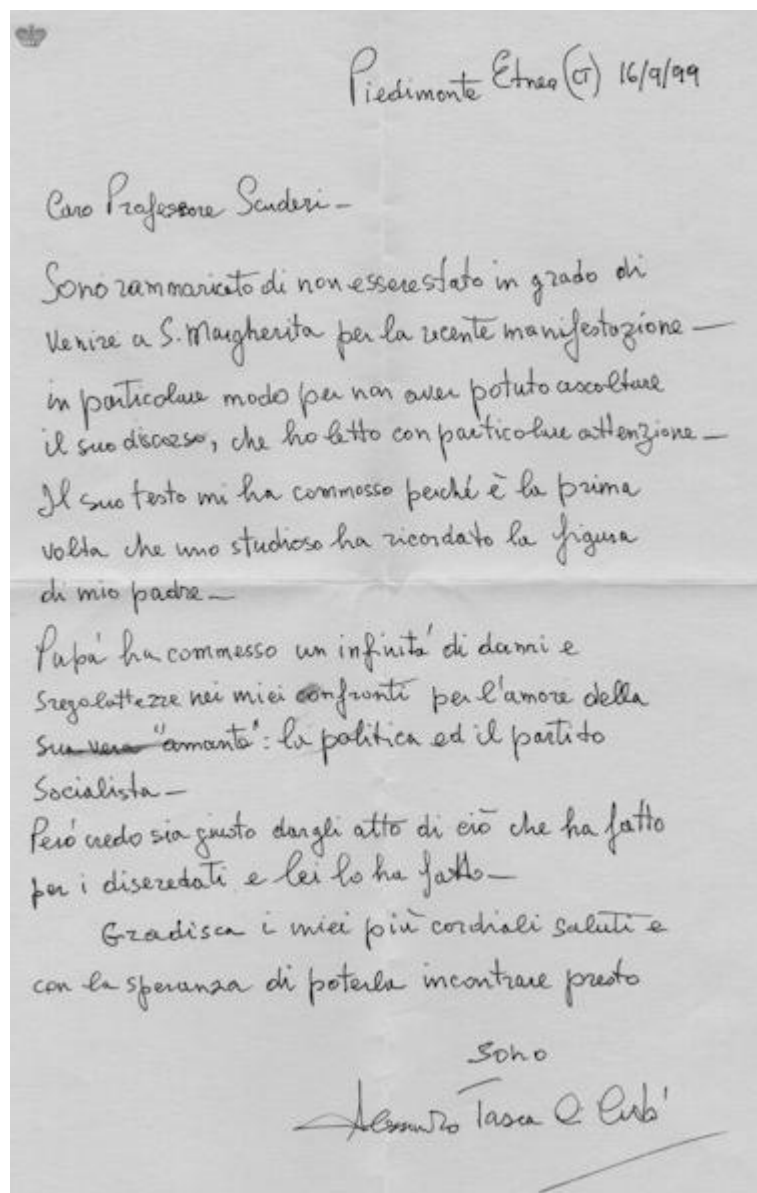 Piedimonte Etnea (CT) 16/9/99
Caro Professore Scuderi -
Sono rammaricato di non essere stato in grado di
venire a S. Margherita per la recente manifestazione -
in particolare modo per non aver potuto ascoltare
il suo discorso, che ho letto con particolare attenzione -
Il suo testo mi ha commosso perché è la prima
volta che uno studioso ha ricordato la figura
di mio padre -
Papá ha commesso un infinitá di danni e
sregolattezze nei miei confronti per l'amore della
sua vera "amante": la politica ed il partito
Socialista -
Peró credo sia giusto dargli atto di ciò che ha fatto
per i diseredati e lei lo ha fatto -
Gradisca i miei più cordiali saluti e
con la speranza di poterla incontrare presto
sono
Alessandro Tasca di Cutò